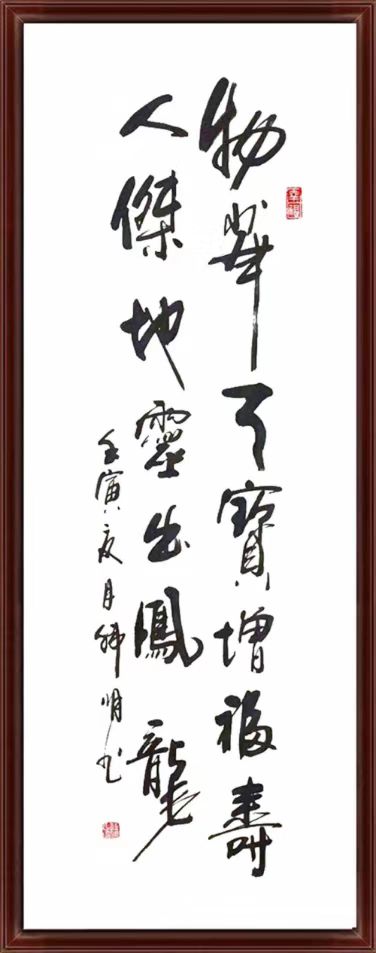 物華天寶增福壽
人傑地靈出鳳龍
壬寅夏月
明書